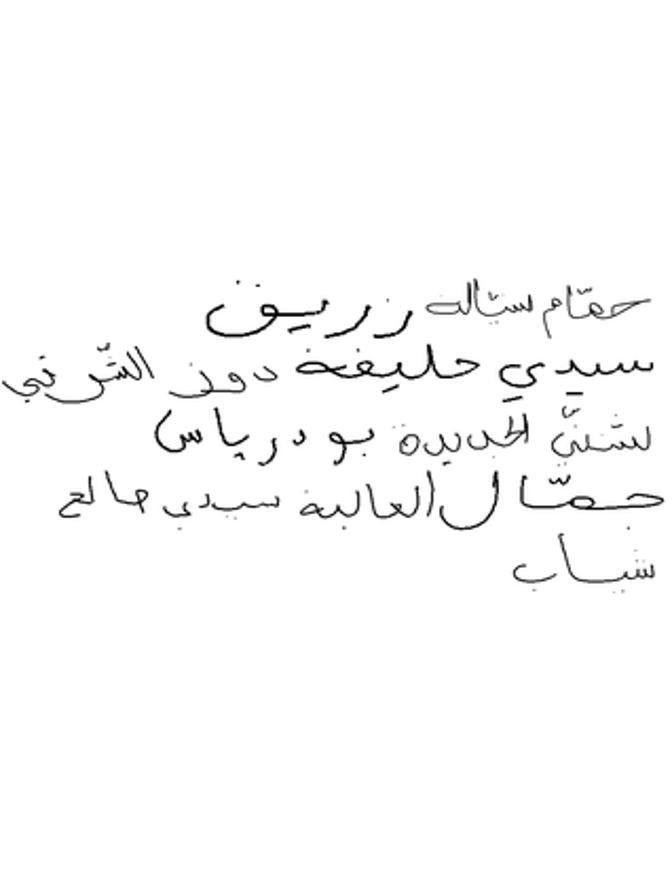 حمّام سيّالة زريق
سيدي خليفة دوز الشّرقي
شنّنّي الجديدة بودرياس
جمّال العالية سيدي صالح
شباب